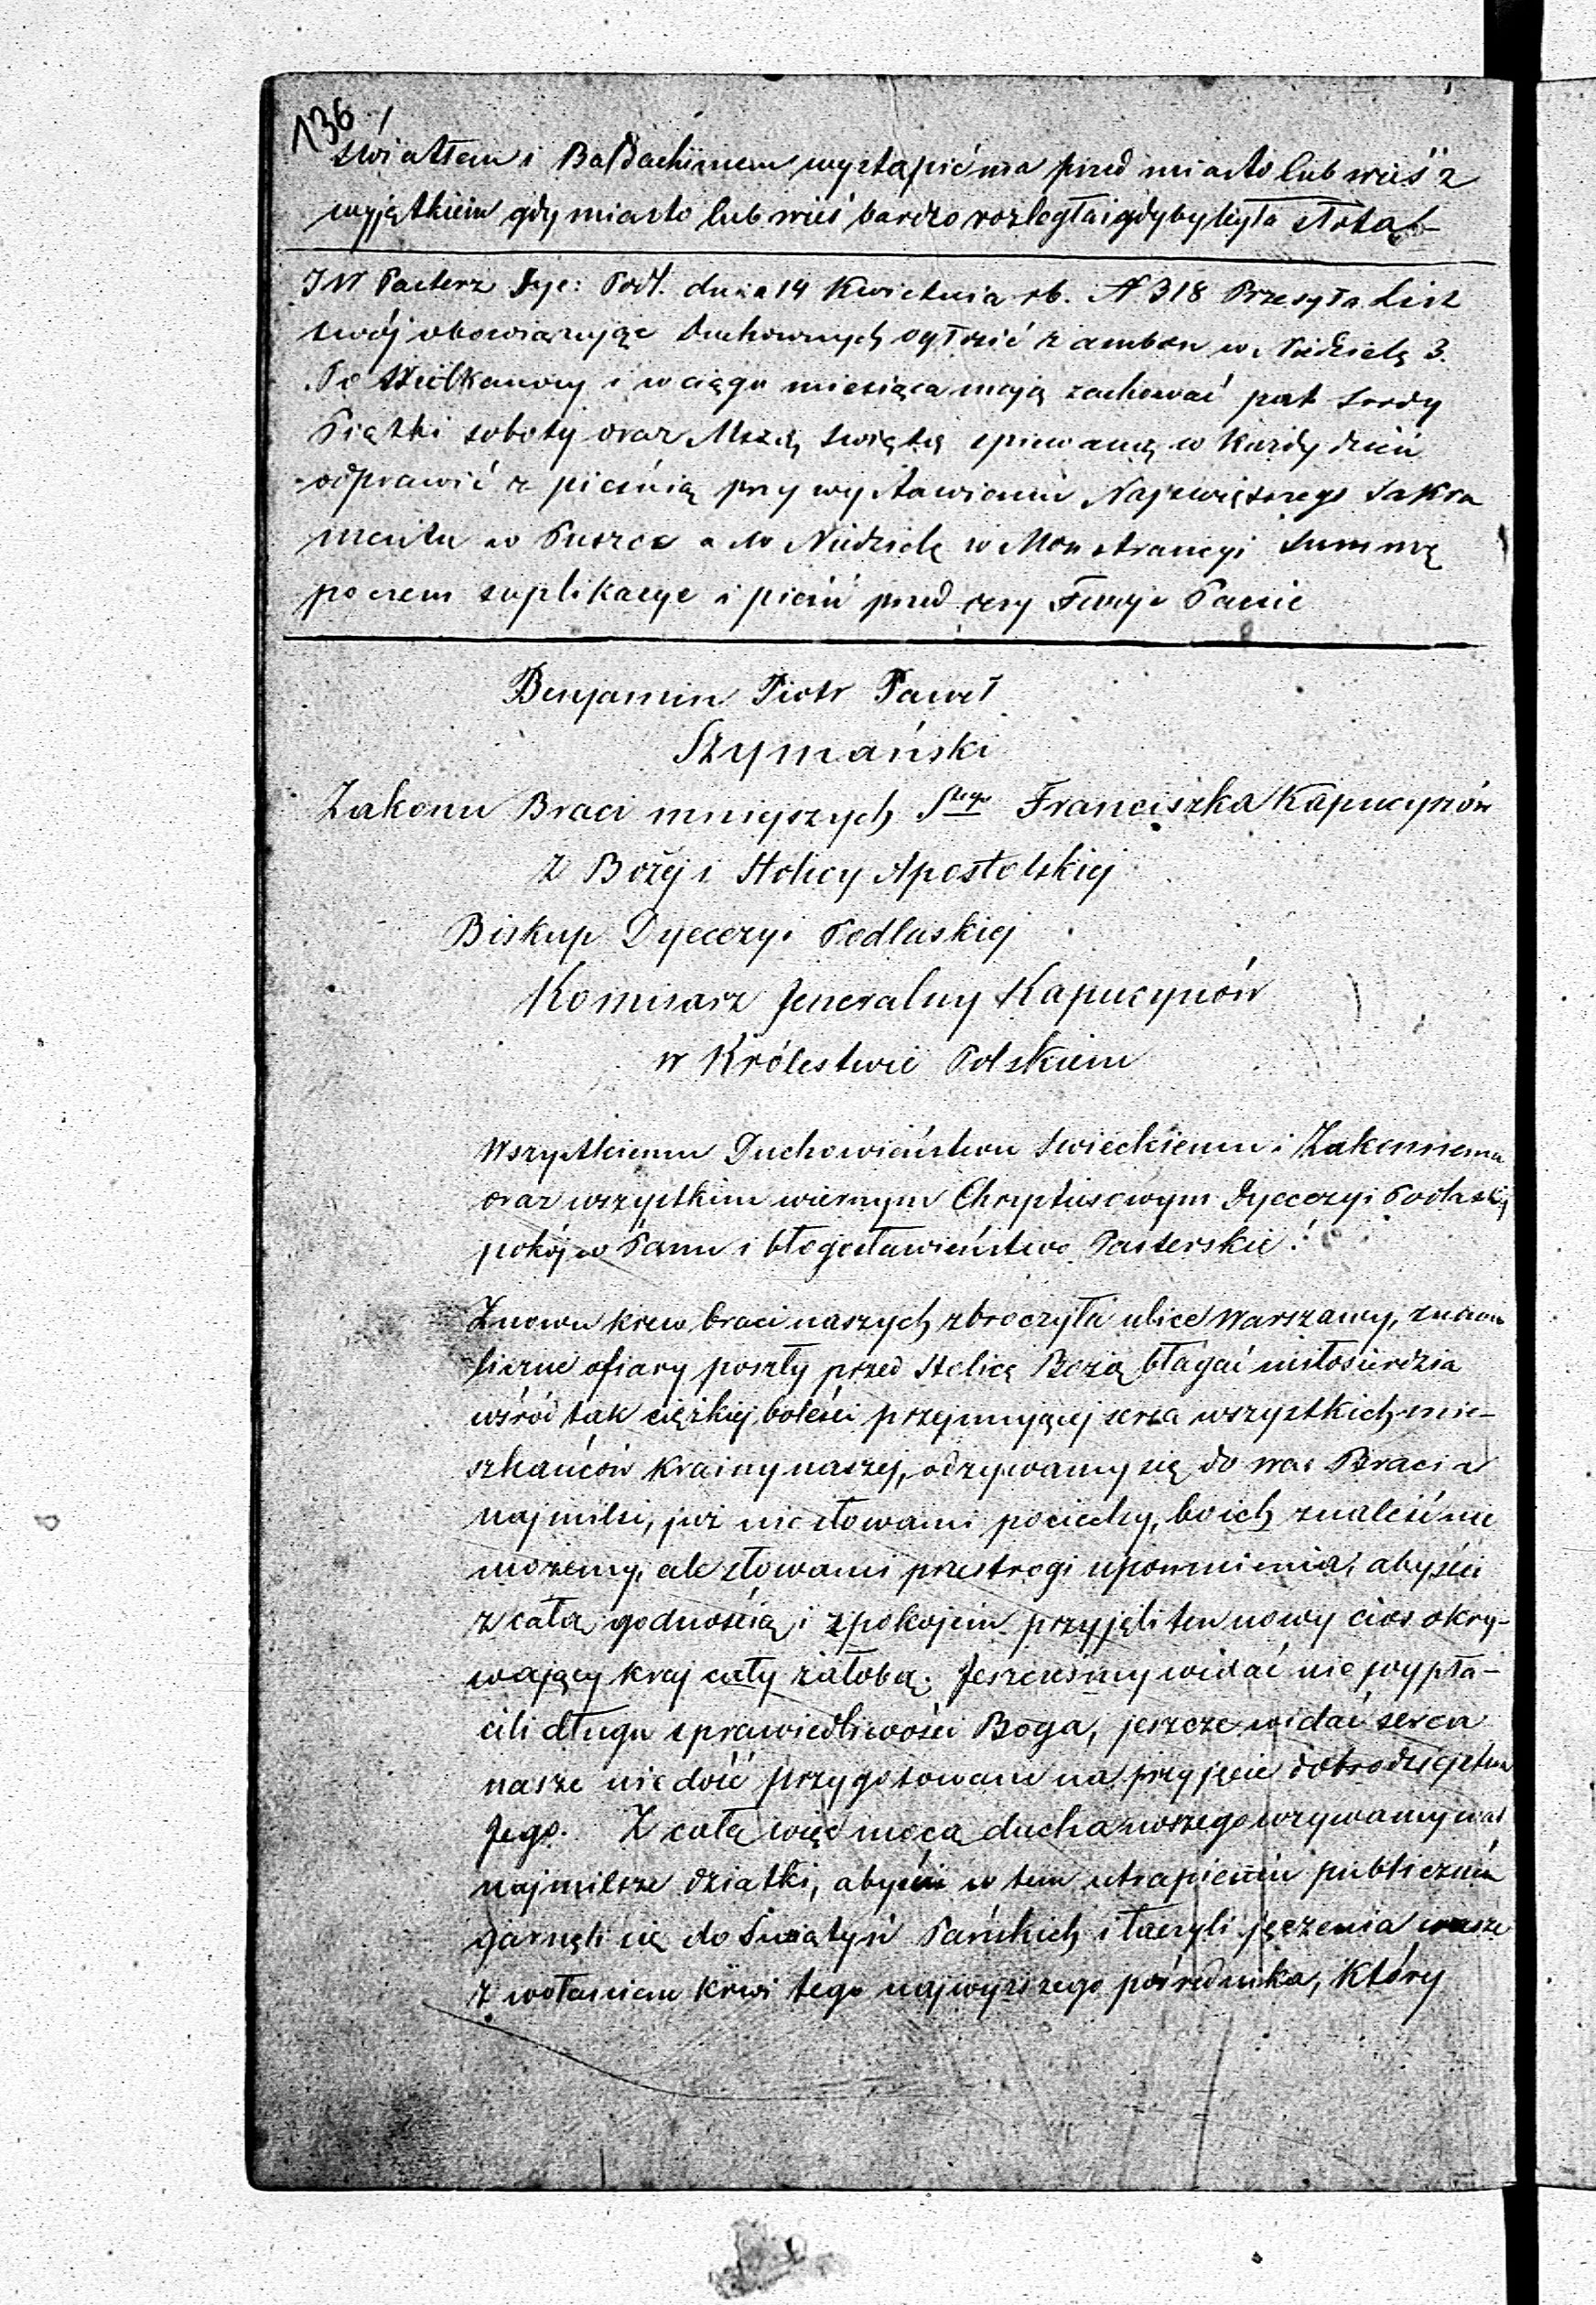 136
światłem i Baldachimem wystąpić ma przed miasto lub wieś z
wyjątkiem gdy miasto lub wieś bardzo rozległa i gdyby była słota
JW Pasterz Dye: Podl. dnia 14 Kwietnia rb. N 318 Przesyła List
swój obowiązując Duchownych ogłosić z ambon w Niedzielę 3.
Po Wielkanocy i w ciągu miesiąca mają zachować post Srody
Piątki soboty oraz Mszą Swiętą spiewaną w każdy dzień
odprawić z pieśnią przy wystawieniu Najswiętszego Sakra
mentu w Puszce a w Niedzielę w Monstrancyi Summę
poczem suplikacye i pieśń przed oczy Twoje Panie
Benjamin Piotr Paweł
Szymański
Zakonu Braci mniejszych Stego Franciszka Kapucynów
Z Bożej i Stolicy Apostolskiej
Biskup Dyecezyi Podlaskiej
Komisarz Jeneralny Kapucynów
w Królestwie Polskiem
Wszystkiemu Duchowieństwu Swieckiemu i Zakonnemu
oraz wszystkim wiernym Chrystusowym Dyecezyi Podlaskiej
pokój w Panu i błogosławieństwo Pasterskie!
Znowu krew braci naszych zbroczyła ulice Warszawy, znowu
liczne ofiary poszły przed Stolicę Bożą błagać miłosierdzia
wśród tak ciężkiej boleści przejmującej serca wszystkich mie-
szkańców krainy naszej, odzywamy się do was Bracia
najmilsi, już nie słowami pociechy, bo ich znaleść nie
możemy, ale słowami przestrogi upomnienia, abyście
z całą godnością i spokojem przyjęli ten nowy cios okry-
wający kraj cały żałobą. Jeszcześmy widać nie wypła-
cili długu sprawiedliwości Boga, jeszcze widać serca
nasze nie dość przygotowane na przyjęcie dobrodziejstw
Jego. Z całą więc mocą ducha naszego wzywamy was
najmilsze dziatki, abyście w tem utrapieniu publicznem
garnęli się do Swiątyń Pańskich i łączyli jęczenia wasze
z wołaniem krwi tego najwyższego pośrednika, który